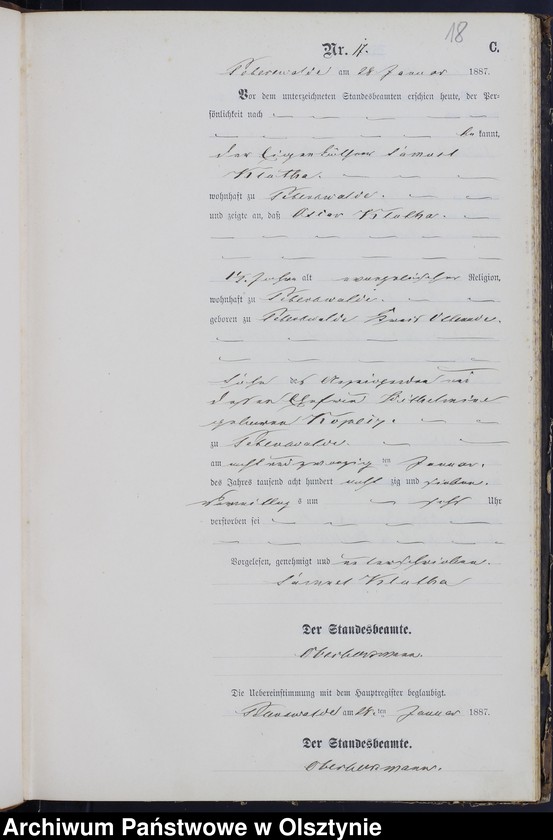 18
Nr. 11. C.
Peterswalde am 28 Januar 1887.
Vor dem unterzeichneten Standesbeamten erschien heute, der Per-
sönlichkeit nach
be kannt,
der Eigenkäthner Samuel
Klatha.
wohnhaft zu Peterswalde.
und zeigte an, daß Oscar Klatha.
Jahre alt evangelischer Religion,
wohnhaft zu Peterswalde.
geboren zu Peterswalde Kreis
Sohn des Anzeigenden und
dessen Ehefrau Wilhelmine
geborenen
zu Peterswalde
am acht und zwanzig ten Januar.
des Jahres tausend acht hundert acht zig und sieben.
Vormittag s um Uhr
verstorben sei
Vorgelesen, genehmigt und unterschrieben.
Samuel Klatha
Der Standesbeamte.
Die Uebereinstimmung mit dem Hauptregister beglaubigt.
Peterswalde am 28. ten Januar 1887.
Der Standesbeamte.
Archiwum Państwowe w Olsztynie